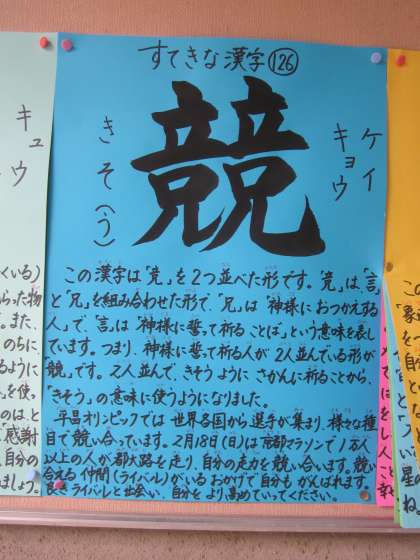 すてきな漢字 126
競
ケイ
キョウ
きそ(う)
この漢字は「竞」を2つ並べた形です。「竞」は、「言」
と「兄」を組み合わせた形で、「兄」は「神様におつかえする
人」で、「言」は「神様に誓って祈ることば」という意味を表し
ています。つまり、神様に誓って祈る人が2人並んでいる形が
「競」です。2人並んで、きそうようにさかんに祈ることから、
「きそう」の意味に使うようになりました。
平昌オリンピックでは世界各国から選手が集まり、様々な種
目で競い合っています。2月18日(日)は京都マラソンで1万人
以上の人が都大路を走り、自分の走力を競い合います。競い
合える仲間(ライバル)がいるおかげで自分もがんばれます。
良きライバルと出会い、自分をより高めていってください。
キュウ
くいる)
らった物
。また、
のちに
るように
」を使っ
のは、と
「感謝
自分の
ましょう。